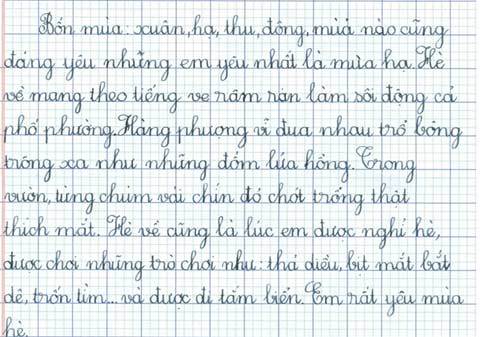 Bốn mùa: xuân, hạ, thu, đông, mùa nào cũng
đáng yêu nhưng em yêu nhất là mùa hạ. Hè
về mang theo tiếng ve râm ran làm sôi động cả
phố phường. Hàng phượng vĩ đua nhau trổ bông
trông xa như những đốm lửa hồng. Trong
vườn, từng chùm vải chín đỏ chót trông thật
thích mắt. Hè về cũng là lúc em được nghỉ hè,
được chơi những trò chơi như: thả diều, bịt mắt bắt
dê, trốn tìm... và được đi tắm biển. Em rất yêu mùa
hè.